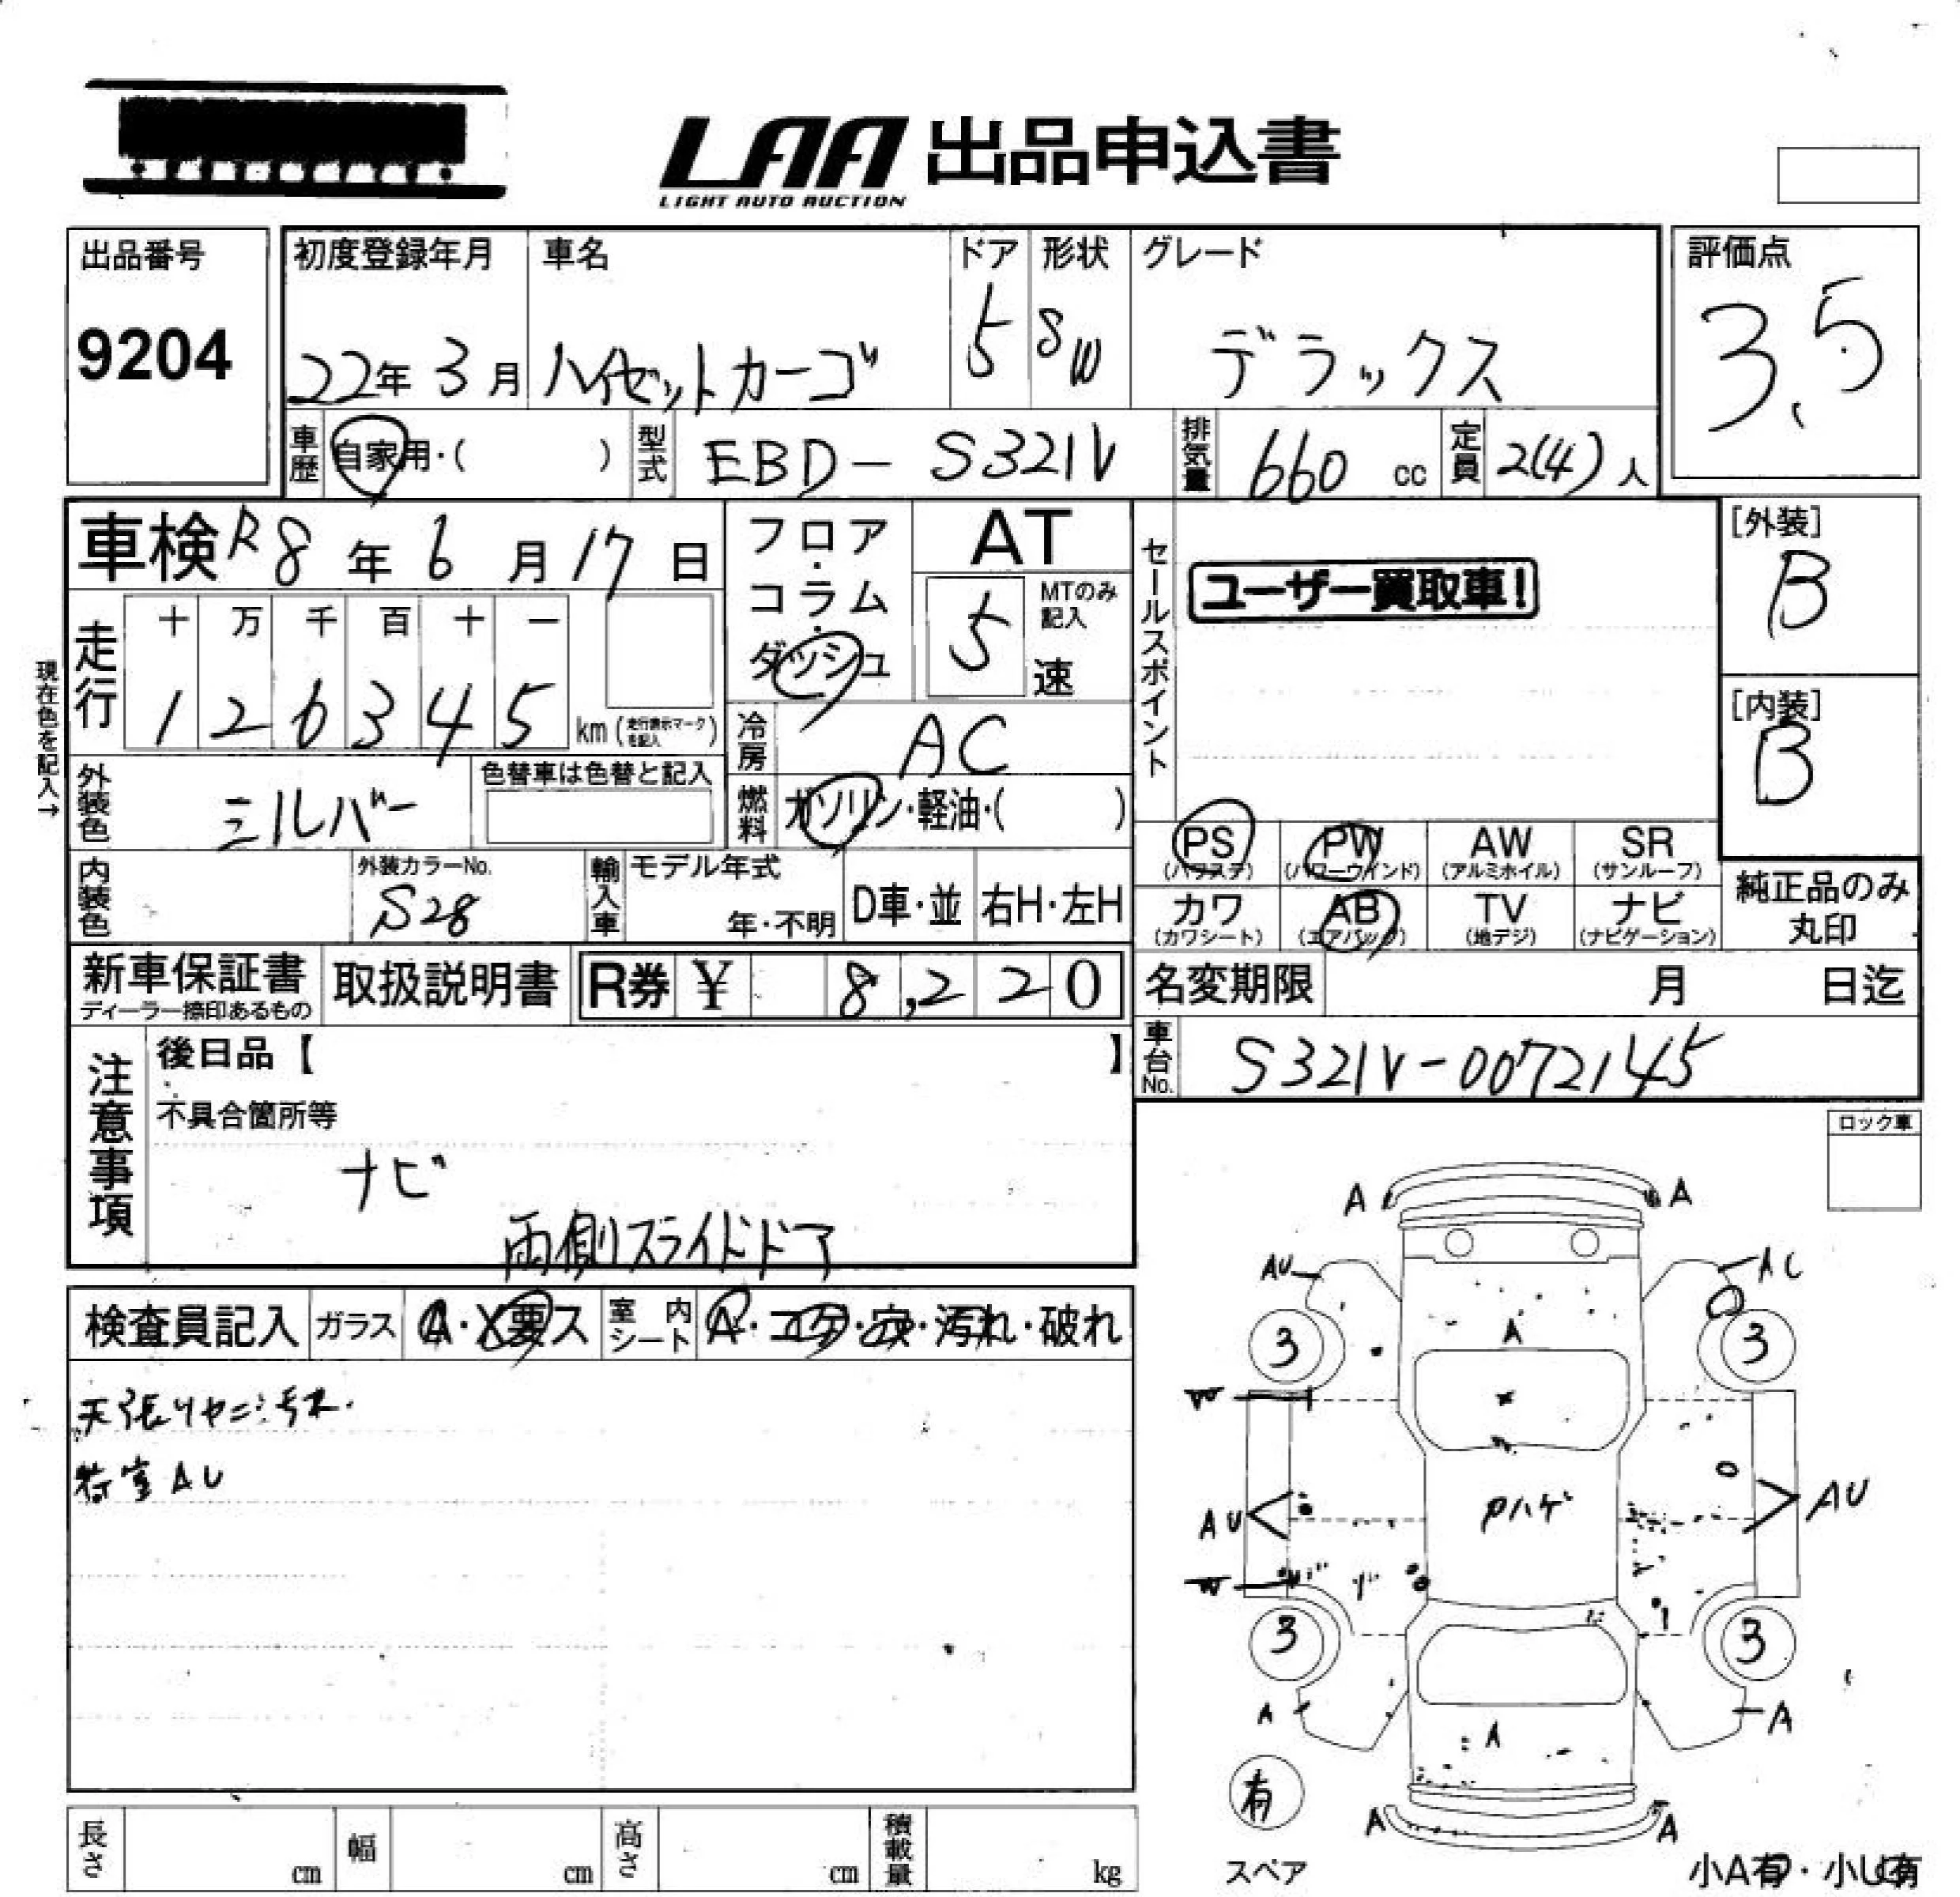 LAA 出品申込書
LIGHT AUTO AUCTION
出品番号
9204
初度登録年月
22年 3月
車名
ハイゼットカーゴ
ドア
5
形状
SW
グレード
デラックス
評価点
3.5
車歴
自家用・( )
型式
EBD-S321V
排気量
660 cc
定員
2(4)人
車検 R8年 6月 17日
フロア・コラム・ダッシュ
AT
5
MTのみ記入
速
セールスポイント
ユーザー買取車!
[外装]
B
[内装]
B
現在色を記入→
走行
十 万 千 百 十 一
1 2 6 3 4 5 km (走行表示マークを記入)
冷房
AC
外装色
シルバー
色替車は色替と記入
燃料
ガソリン・軽油・( )
PS (パワステ)
PW (パワーウインド)
AW (アルミホイル)
SR (サンルーフ)
内装色
外装カラーNo.
S28
輸入車
モデル年式
年・不明
D車・並
右H・左H
カワ (カワシート)
AB (エアバッグ)
TV (地デジ)
ナビ (ナビゲーション)
純正品のみ丸印
新車保証書
ディーラー捺印あるもの
取扱説明書
R券 ¥ 8,220
名変期限 月 日迄
車台No.
S321V-0072145
注意事項
後日品【 】
不具合箇所等
ナビ
両側スライドドア
ロック車
検査員記入
ガラス
A・X要ス
室内シート
A・コゲ・穴・汚れ・破れ
天張りヤニ汚れ.
荷室AU
A A
AU AC
3 A 3
W
AU Pハゲ AU
W
3 3
A A
A
有
A A
スペア
小A有・小U有
長さ cm
幅 cm
高さ cm
積載量 kg